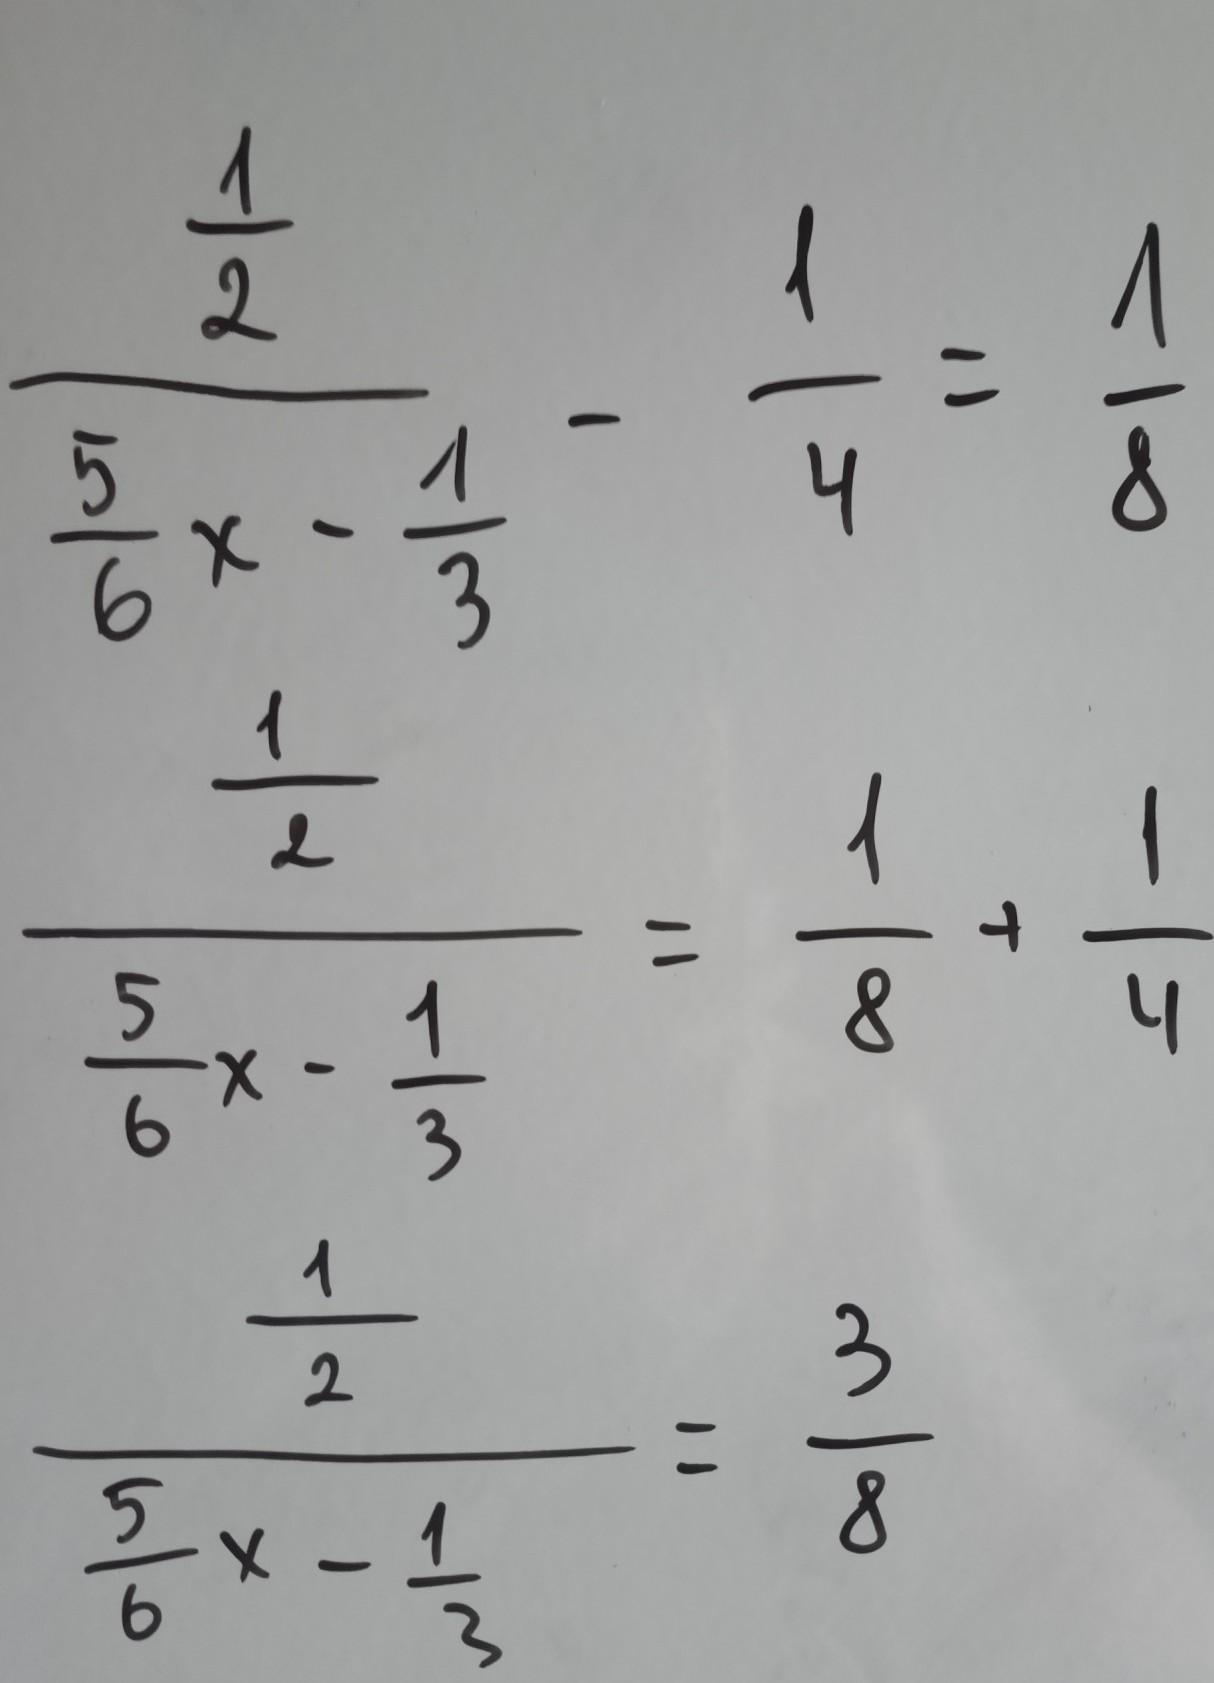 (1/2)/(5/6 x - 1/3) - 1/4 = 1/8
(1/2)/(5/6 x - 1/3) = 1/8 + 1/4
(1/2)/(5/6 x - 1/3) = 3/8